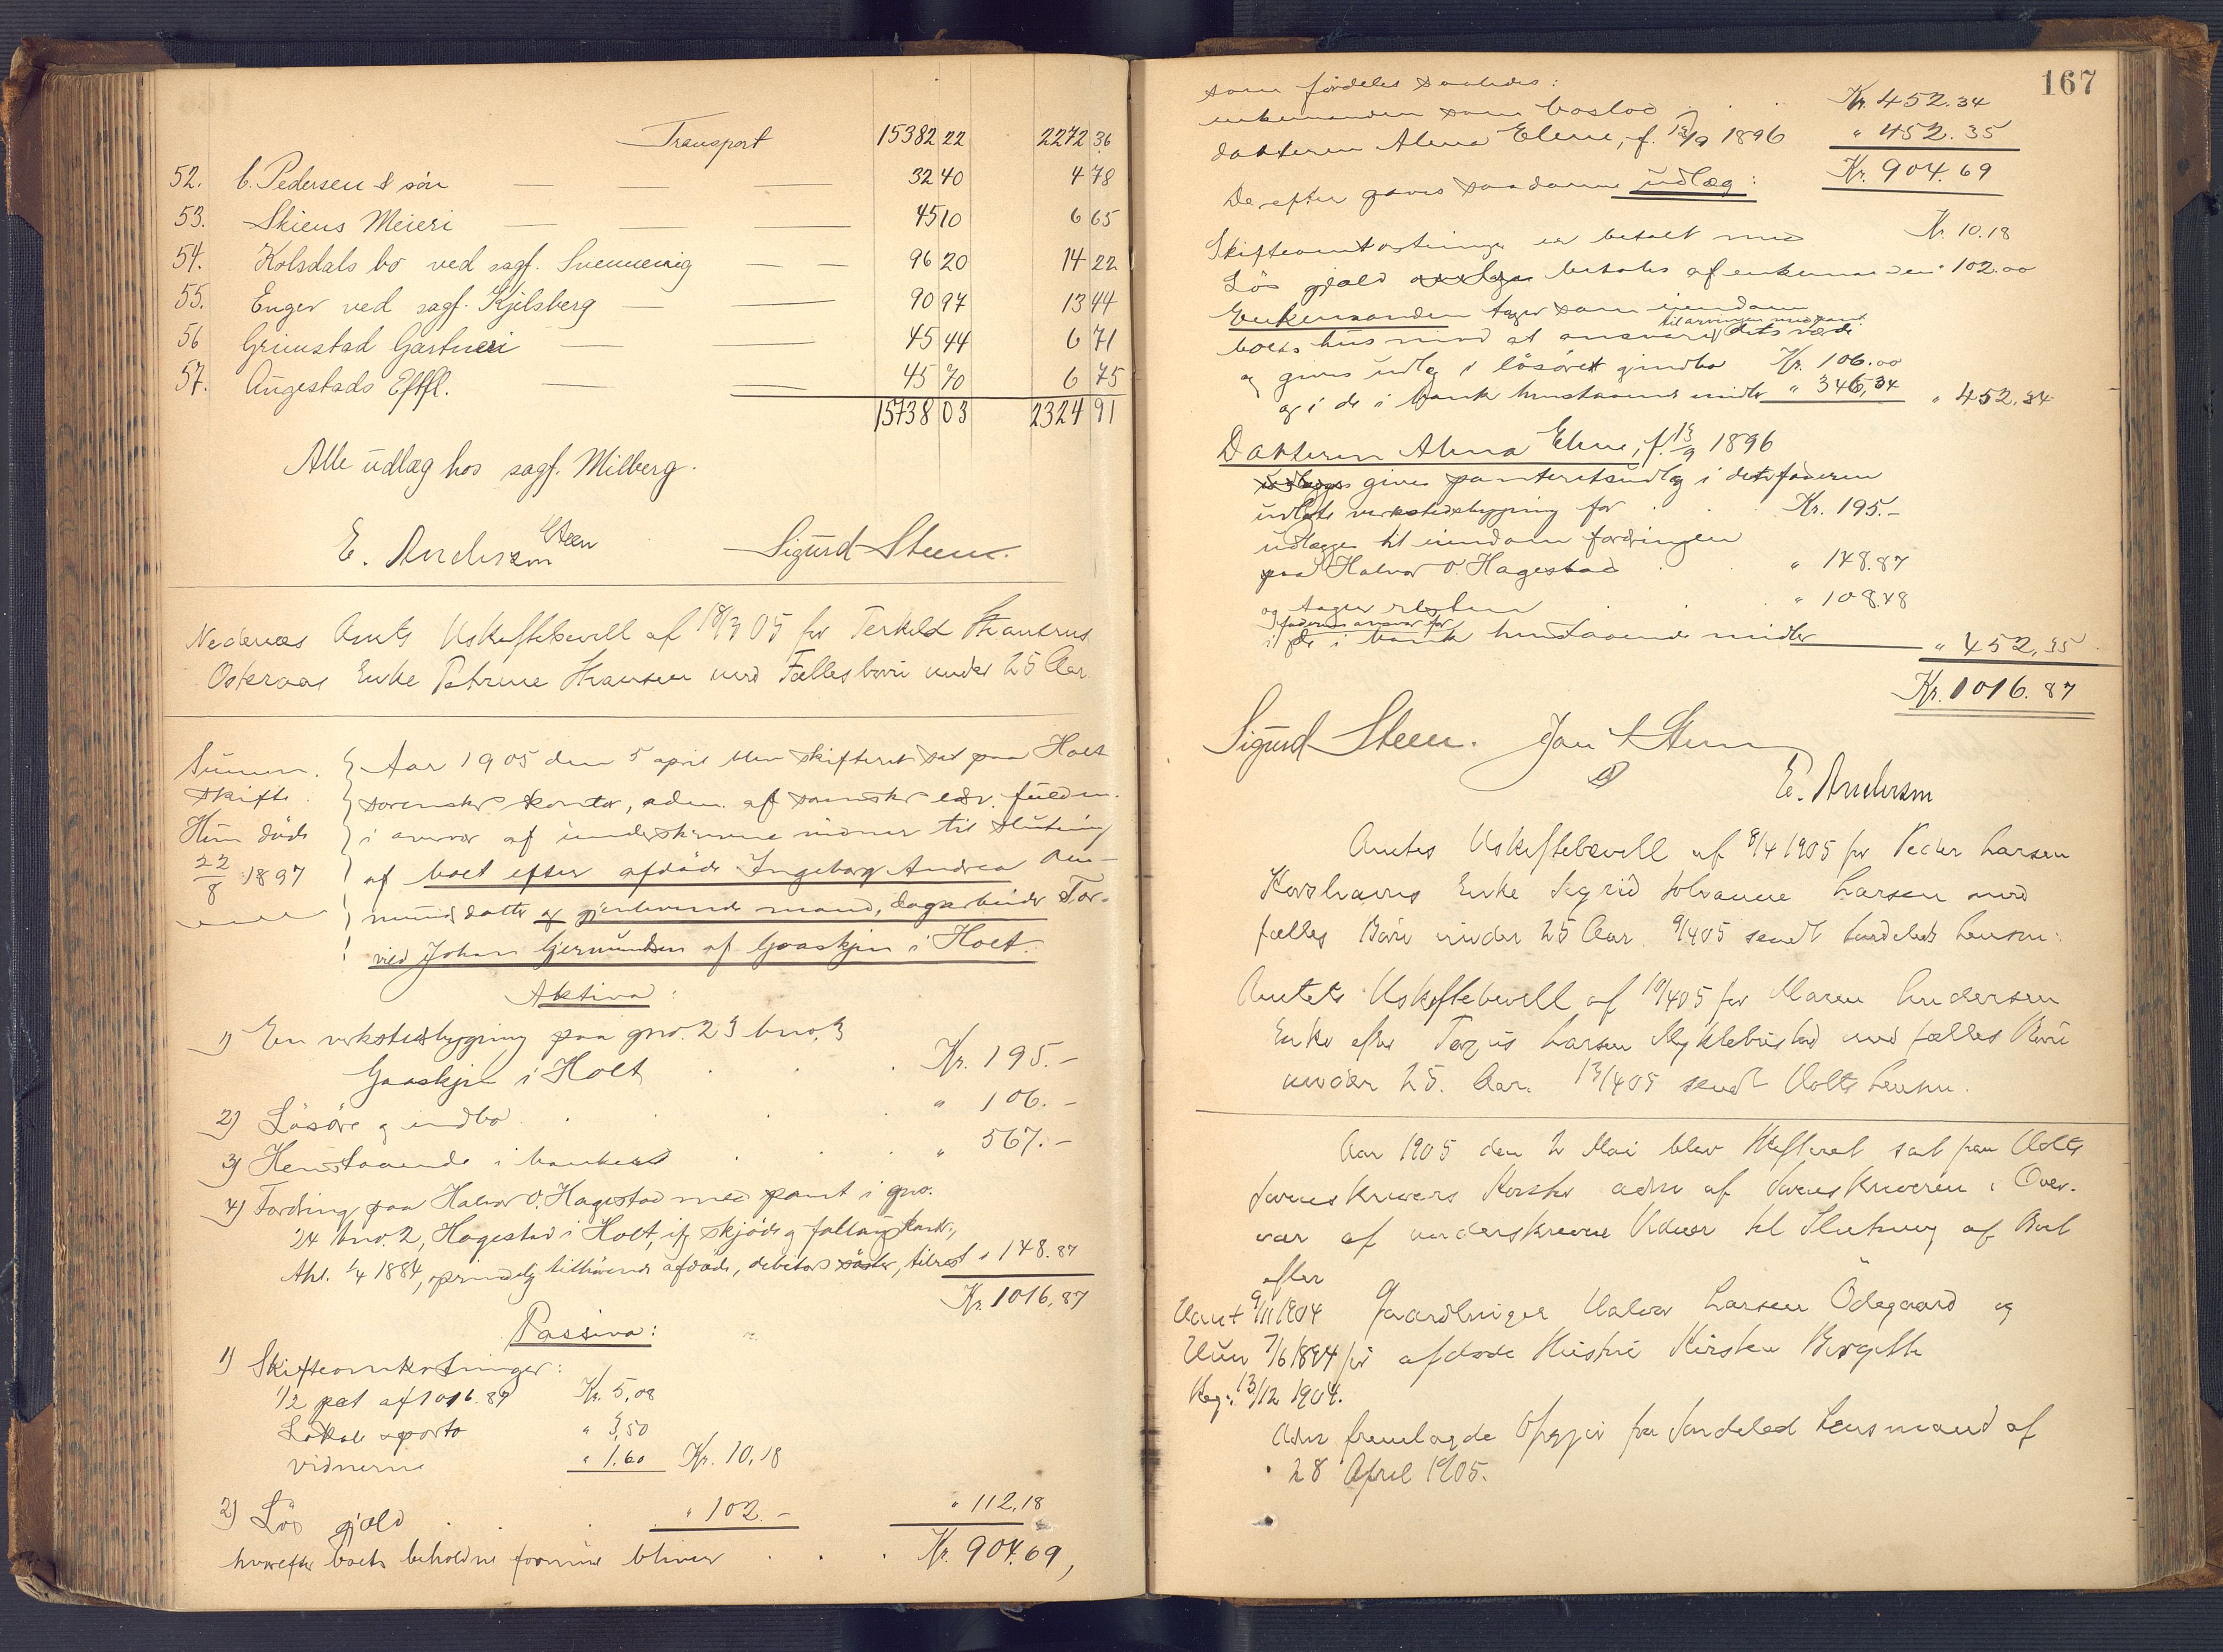 Transport 15382 22 2272 36
52. C. Pedersen & søn 32 40 4 78
53. Skiens Meieri 45 10 6 65
54. Kolsdals bo ved sagf. 96 20 14 22
55. Enger ved sagf. Kjelsberg 90 97 13 44
56 Grimstad Gartneri 45 44 6 71
57. Augestads Eftfl. 45 70 6 75
15738 03 2324 91
Alle udlæg hos sagf. Milberg.
E. Andersen Steen Sigurd Steen.
Nedenæs Amts Uskiftebevill af 18/3 05 for Terkild
Osteraas Enke Petrine Hansen med Fællesbørn under 25 Aar.
Summ.
skifte.
Hun døde
22/8 1897
Aar 1905 den 5 april blev skifteret sat paa Holt
sorenskr kontor, adm. af sorenskr edsv. fuldm.
i overvær af underskrevne vidner til slutning
af boet efter afdøde Ingeborg Andrea Am-
mundsdatter og gjenlevende mand, dagarbeider Tor-
vild Johan Gjermundsen af Gaaskjen i Holt.
Aktiva:
1) En verkstedsbygning paa gno. 23 bno. 3
Gaaskjen i Holt . . . Kr. 195.-
2) Løsøre og indbo . . . " 106.-
3) Henstaaende i banken . . . " 567.-
4) Fordring paa Halvor O. Hagestad med pant i gno.
24 bno. 2, Hagestad i Holt, ifg skjøde og
thl. 1/4 1884, oprindelig tilhørende afdøde, debitors søster, tilrest " 148.87
Kr. 1016,87
Passiva:
1) Skifteomkostninger:
1/2 pct af 1016.87 Kr. 5,08
Lokale & porto " 3,50
vidnerne " 1.60 Kr. 10,18
2) Løs gjæld . . " 102.- " 112,18
hvorefter boets beholdne formue bliver . . . Kr. 904.69,
167
som fordeles saaledes:
enkemanden som boslod . . . Kr. 452.34
datteren Alma Elene, f. 13/9 1896 " 452.35
Kr. 904.69
Derefter gaves saadanne udlæg:
Skifteomkostninger er betalt med Kr. 10.18
Løs gjæld betales af enkemanden " 102.00
Enkemanden tager som eiendom
boets hus mod at ansvare til arvingen dets værdi
og gives udlæg i løsøret og indbo Kr. 106.00
og i de i bank henstaaende midler " 346,34 " 452.34
Datteren Alma Elene, f. 13/9 1896
gives panteretsudlæg i det faderen
udlagte verkstedsbygning for . . Kr. 195.-
udlægges til eiendom fordringen
paa Halvor O. Hagestad . . " 148.87
og tager resten . . . " 108.48
i faderens ansvar for
de i bank henstaaende midler " 452,35
Kr. 1016.87
Sigurd Steen. Jon S Steen
E. Andersen
Amtets Uskiftebevill af 8/4 1905 for Peder Larsen
Korshavns Enke Sigrid Johanne Larsen med
fælles Børn under 25 Aar. 9/4 05 sendt Søndeleds Lensm:
Amtets Uskiftebevill af 10/4 05 for Maren Andersen
Enke efter Terjus Larsen Myklebustad med fælles Børn
under 25. Aar. 13/4 05 sendt Holts Lensm.
Aar 1905 den 2 Mai blev Skifteret sat paa Holts
Sorenskrivers Kontor adm af Sorenskriveren i Over-
vær af underskrevne Vidner til Slutning af Boet
efter
Mant 9/11 1904 Gaardbruger Halvor Larsen Ødegaard og
Hun 7/6 1894 før afdøde Hustru Kirsten Birgitte
Reg: 13/12 1904.
Adm fremlagde Opgjør fra Søndeled Lensmand af
28 April 1905.